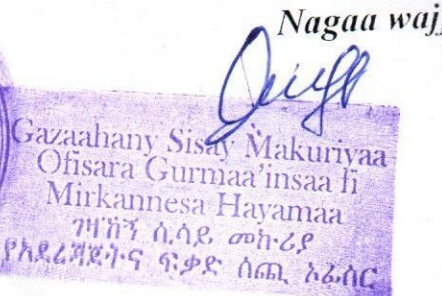 Nagaa waj
Gazaahany Sisay Makuriyaa
Ofisara Gurmaa'insaa fi
Mirkannesa Hayamaa
ገዛኸኝ ሲሳይ መኩሪያ
የአደረጃጀትና ፍቃድ ሰጪ ኦፊሰር